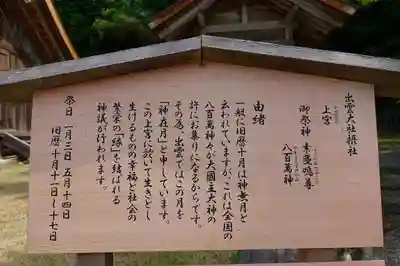 出雲大社摂社
上宮
かみのみや
御祭神 素戔嗚尊
八百萬神
由緒
一般に旧暦十月は神無月と
云われていますが、これは全国の
八百萬神々が大國主大神の
許にお集りになるからです。
その為、出雲ではこの月を
「神在月」と申しています。
この上宮に於いて生きとし
生けるものの幸福と社会の
繁栄の「縁」を結ばれる
神議が行われます。
祭日 一月三日 五月十四日
旧暦 十月十一日〜十七日